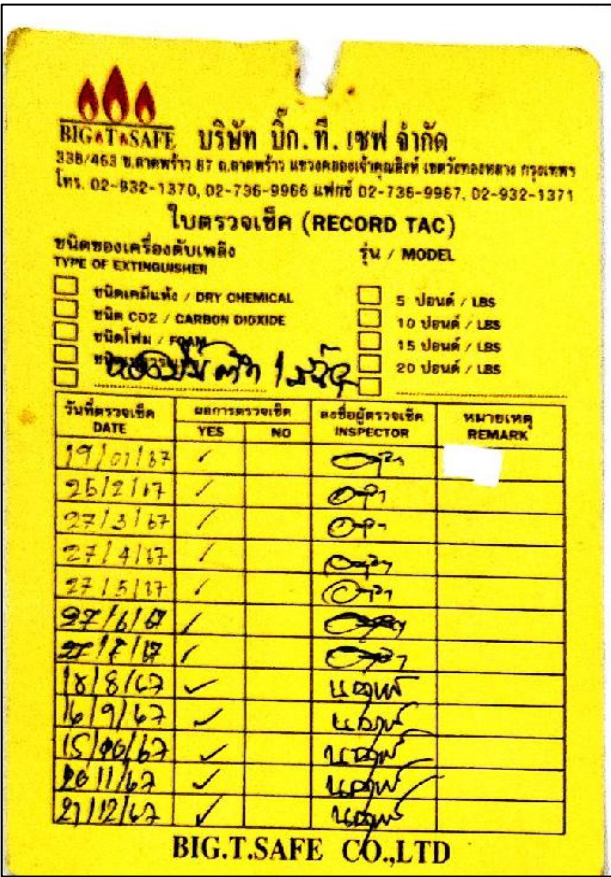 BIG▲T▲SAFE บริษัท บิ๊ก. ที. เซฟ จำกัด
338/463 ซ.ลาดพร้าว 87 ถ.ลาดพร้าว แขวงคลองเจ้าคุณสิงห์ เขตวังทองหลาง กรุงเทพฯ
โทร. 02-932-1370, 02-736-9966 แฟกซ์ 02-736-9967, 02-932-1371
ใบตรวจเช็ค (RECORD TAC)
ชนิดของเครื่องดับเพลิง รุ่น / MODEL
TYPE OF EXTINGUISHER
ชนิดเคมีแห้ง / DRY CHEMICAL 5 ปอนด์ / LBS
ชนิด CO2 / CARBON DIOXIDE 10 ปอนด์ / LBS
ชนิดโฟม / FOAM 15 ปอนด์ / LBS
20 ปอนด์ / LBS
วันที่ตรวจเช็ค ผลการตรวจเช็ค ลงชื่อผู้ตรวจเช็ค หมายเหตุ
DATE YES NO INSPECTOR REMARK
19/01/67 ✓
25/2/67 ✓
27/3/67 ✓
27/4/67 ✓
27/5/67 ✓
27/6/67 ✓
27/7/67 ✓
18/8/67 ✓
16/9/67 ✓
15/10/67 ✓
20/11/67 ✓
21/12/67 ✓
BIG.T.SAFE CO.,LTD